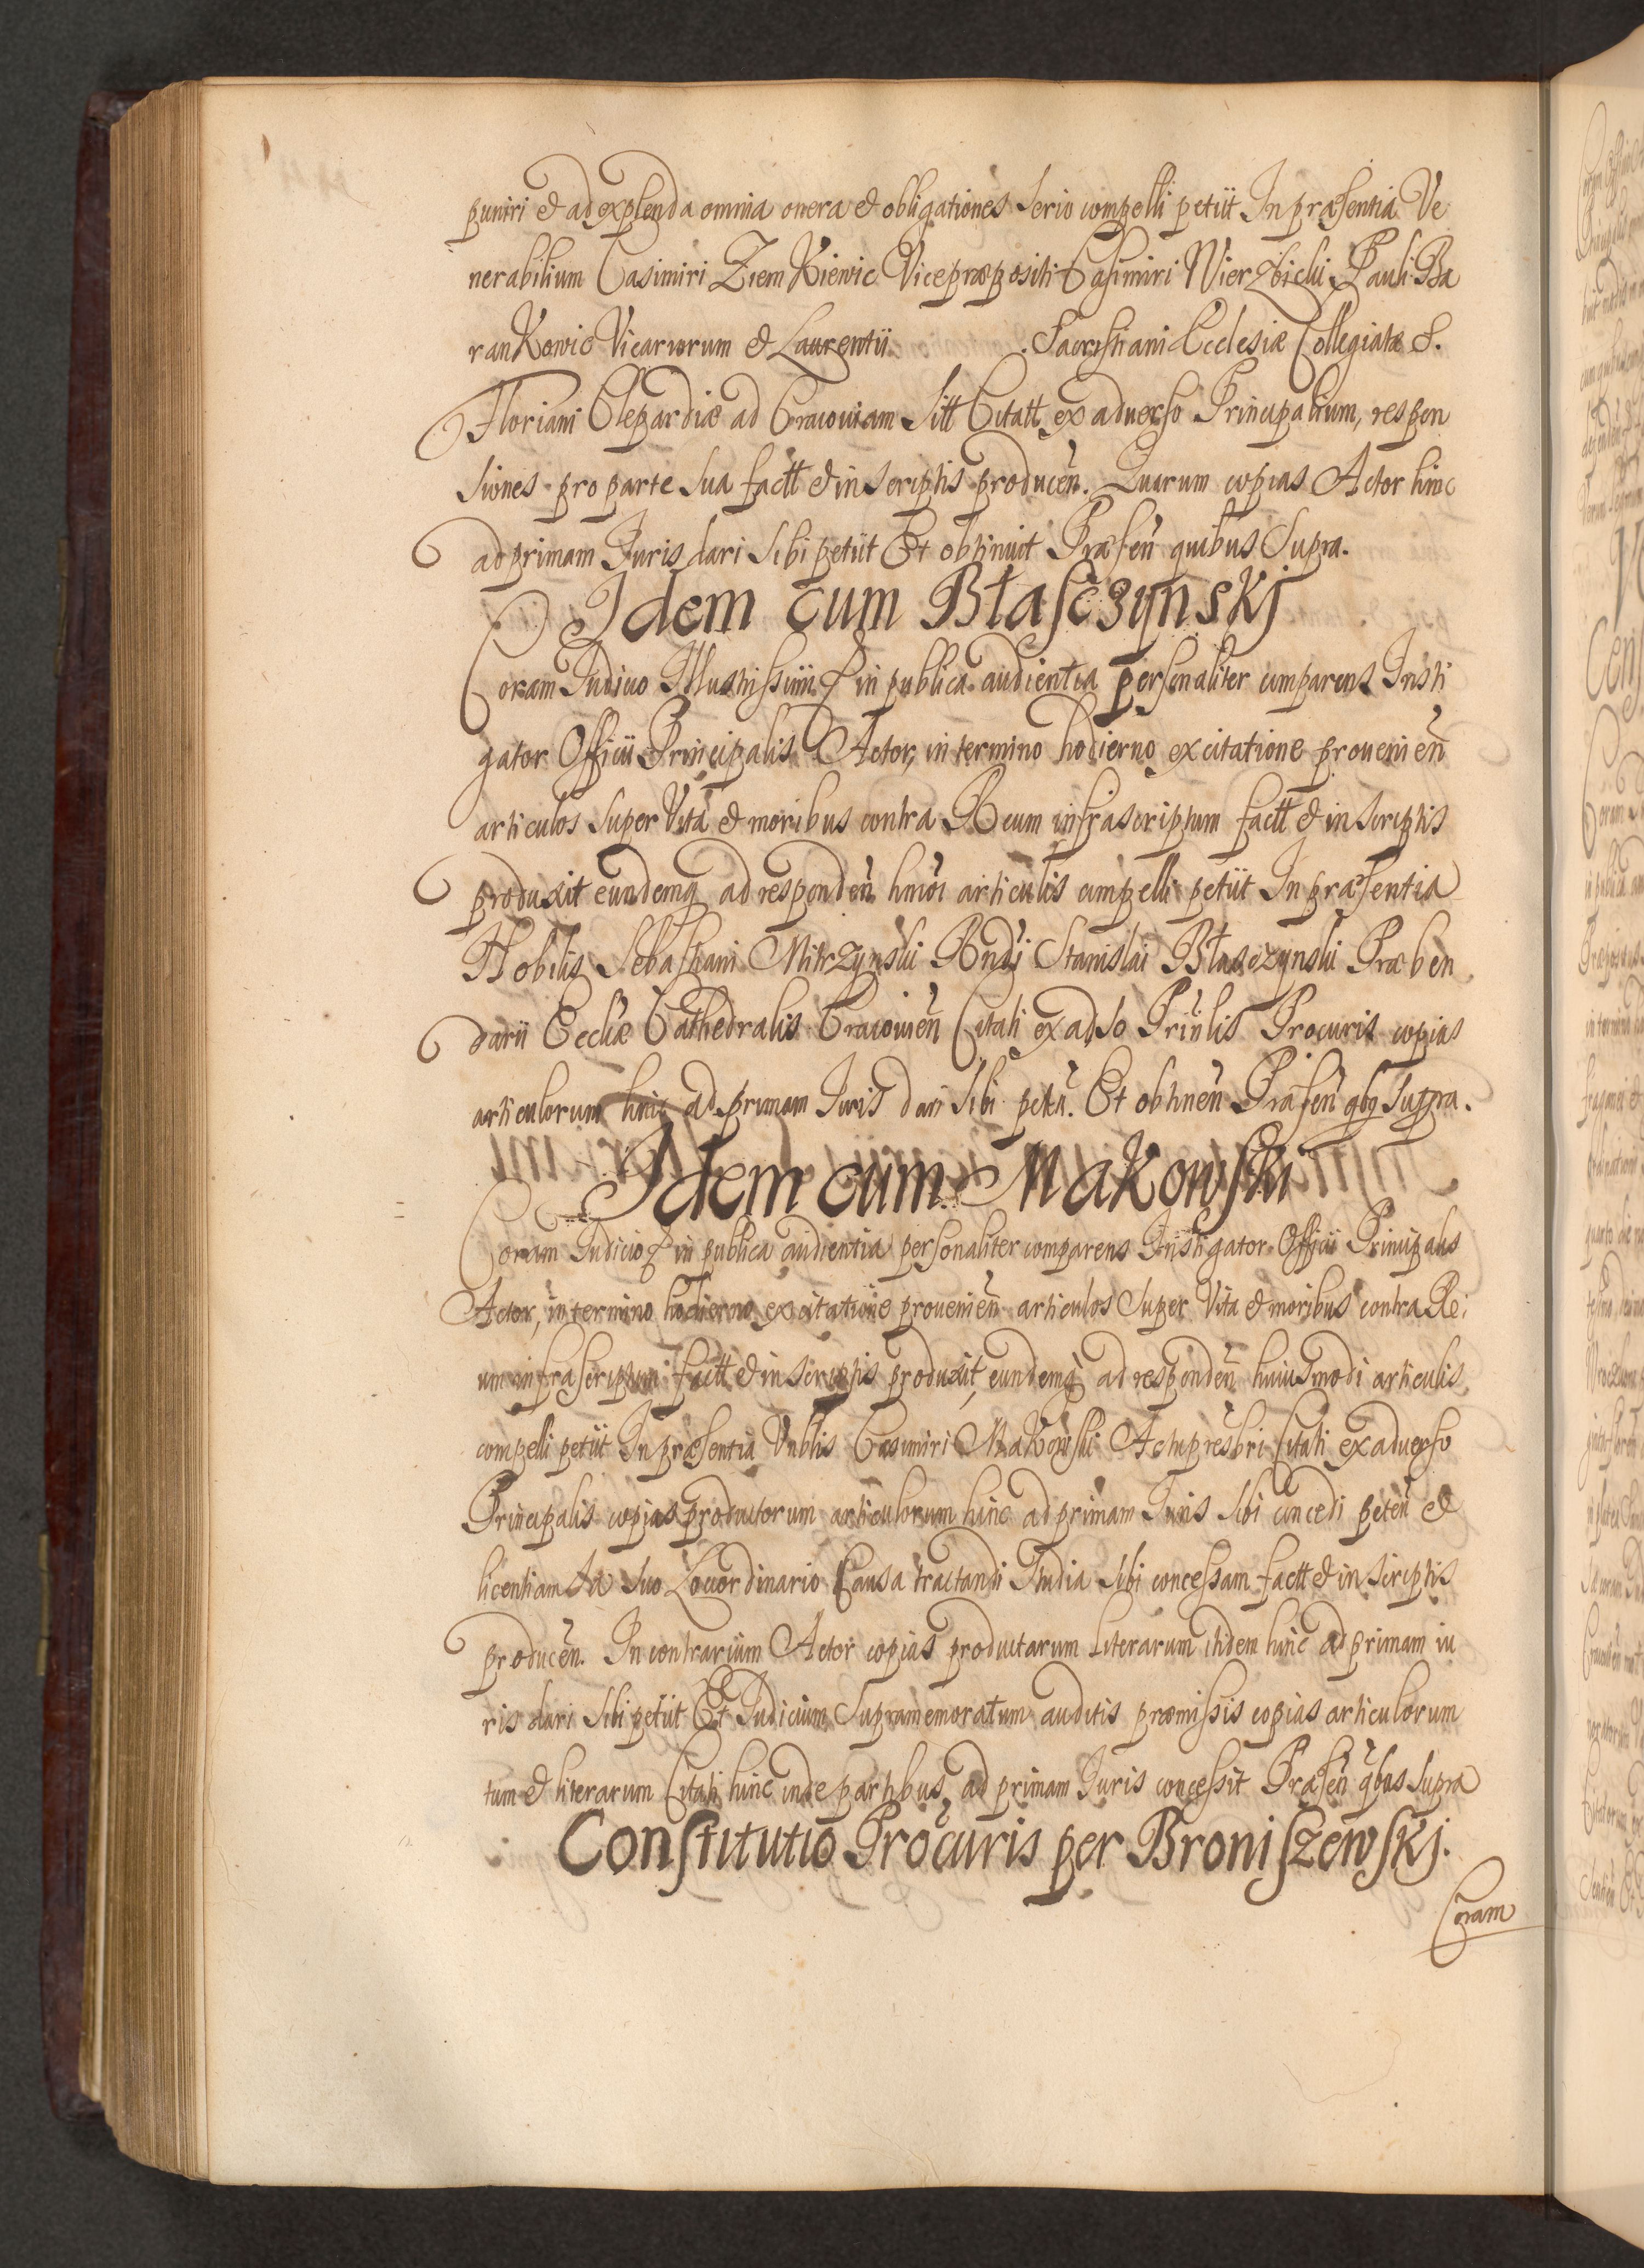 puniri et ad explenda omnia onera et obligationes serio compelli petiit In præsentia Ve
nerabilium Casimiri ZiemKiewic Vicepræpositi Casimiri Wierzbicki Pauli Ba
ranKowic Vicariorum et Laurentii Sacristiani Ecclesiæ Collegiatæ S.
Floriani Clepardiæ ad Cracoviam Sitt Citatt ex aduerso Principalium, respon
siones pro parte sua factt et in scriptis producen̄. Quarum copias Actor hinc
ad primam Juris dari sibi petiit Et obtinuit Præsen̄ quibus supra.
Idem cum Błasczynskj
Coram Judicio Illustrissimi in publica audientia personaliter comparens Insti
gator Officii Principalis Actor, in termino hodierno ex citatione prouenien̄
articulos super Vita et moribus contra Reum infrascriptum factt et in scriptis
produxit eundemq̷ ad responden̄ hmoi articulis compelli petiit In præsentia
Nobilis Sebastiani Mitrzynski Rndi Stanislai Błasczynski Præben
darii Eccliæ Cathedralis Cracouien̄ Citati ex adso Prinlis Procuris copias
articulorum hinc ad primam Juris dari sibi peten̄. Et obtinen̄ Præsen̄ qbq supra.
Idem cum MaKowski
Coram Judicio in publica audientia personaliter comparens Instigator Officii Principalis
Actor, in termino hodierno ex citatione prouenien̄ articulos super Vita et moribus contra Re
um infrascriptum factt et in scriptis produxit, eundemq̷ ad responden̄ huiusmodi articulis
compelli petiit In præsentia Vnblis Casimiri MaKowski Citati ex aduerso
Principalis copias productorum articulorum hinc ad primam Juris sibi concedi peten̄ et
licentiam a suo Locordinario Causa tractandi Studia sibi concessam factt et in scriptis
producen̄. In contrarium Actor copias productarum Literarum itidem hinc ad primam iu
ris dari sibi petiit Et Judicium supramemoratum auditis præmissis copias articulorum
tum et literarum Citati hinc inde partibus ad primam Juris concessit Præsen̄ qbus supra
Constitutio Procuris per Broniszewskj.
Coram